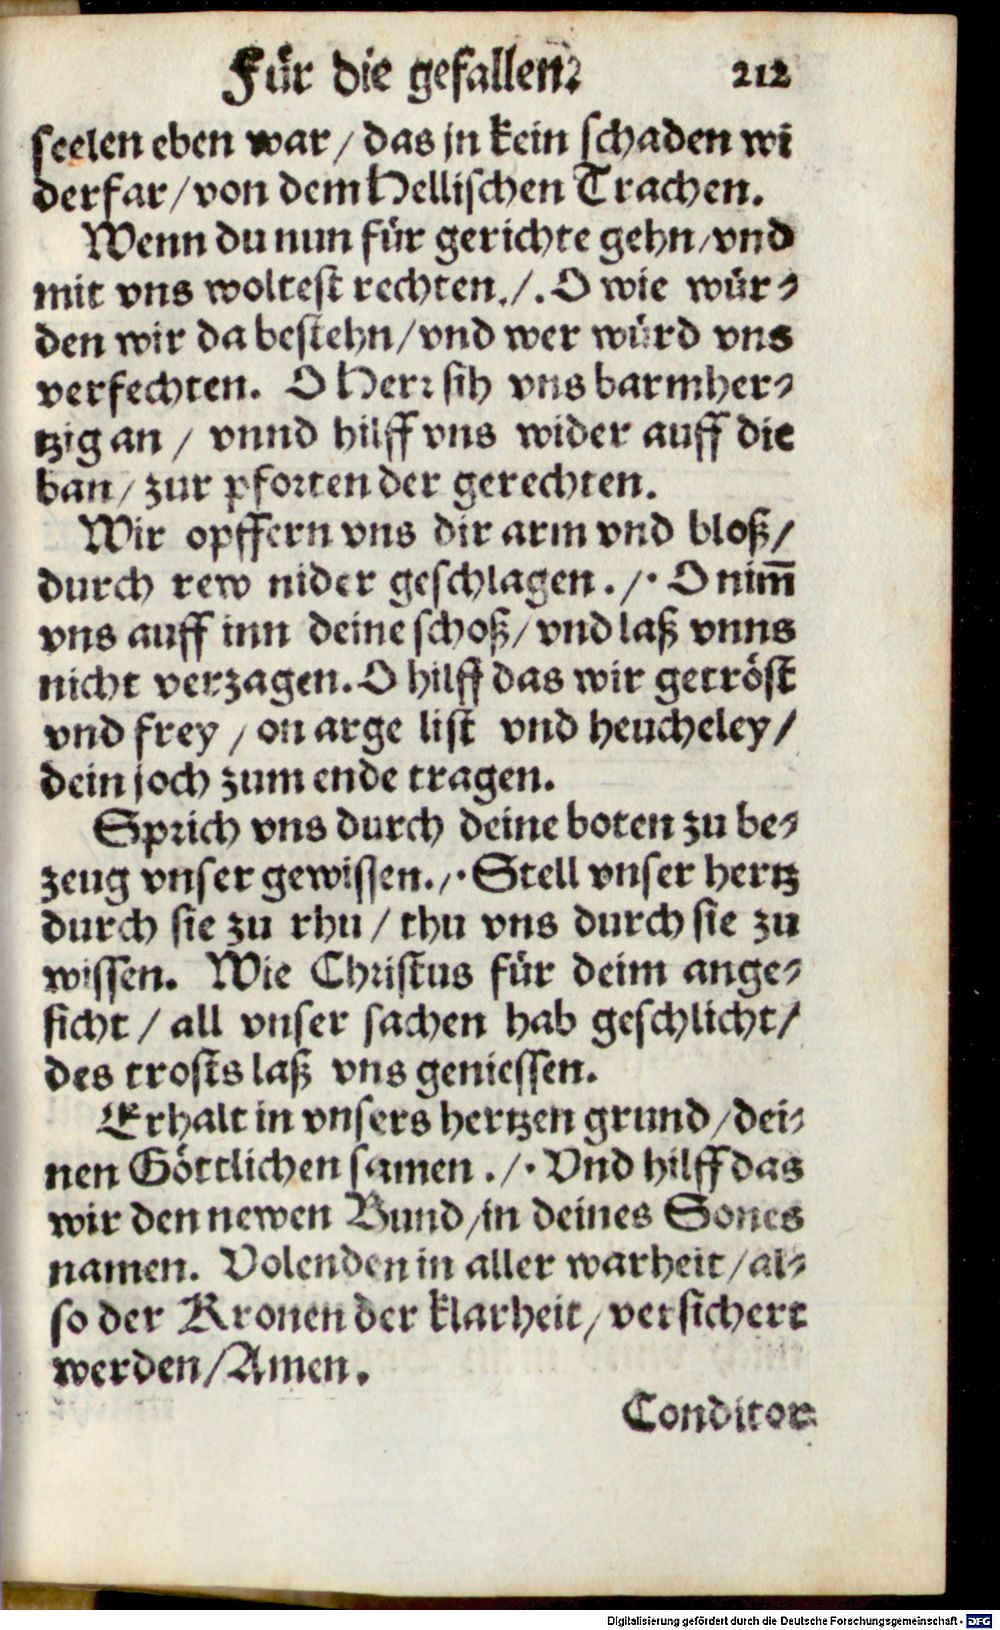 Für die gefallen? 212
seelen eben war / das jn kein schaden wi
derfar / von dem Hellischen Trachen.
Wenn du nun für gerichte gehn / vnd
mit vns woltest rechten. /. O wie wür⸗
den wir da bestehn / vnd wer würd vns
verfechten. O Herr sih vns barmher⸗
tzig an / vnnd hilff vns wider auff die
ban / zur pforten der gerechten.
Wir opffern vns dir arm vnd bloß /
durch rew nider geschlagen. /. O nim̄
vns auff inn deine schoß / vnd laß vnns
nicht verzagen. O hilff das wir getröst
vnd frey / on arge list vnd heucheley /
dein joch zum ende tragen.
Sprich vns durch deine boten zu be⸗
zeug vnser gewissen. /. Stell vnser hertz
durch sie zu rhu / thu vns durch sie zu
wissen. Wie Christus für deim ange⸗
sicht / all vnser sachen hab geschlicht /
des trosts laß vns geniessen.
Erhalt in vnsers hertzen grund / dei⸗
nen Göttlichen samen. /. Vnd hilff das
wir den newen Bund / in deines Sones
namen. Volenden in aller warheit / al⸗
so der Kronen der klarheit / versichert
werden / Amen.
Conditor
Digitalisierung gefördert durch die Deutsche Forschungsgemeinschaft - DFG